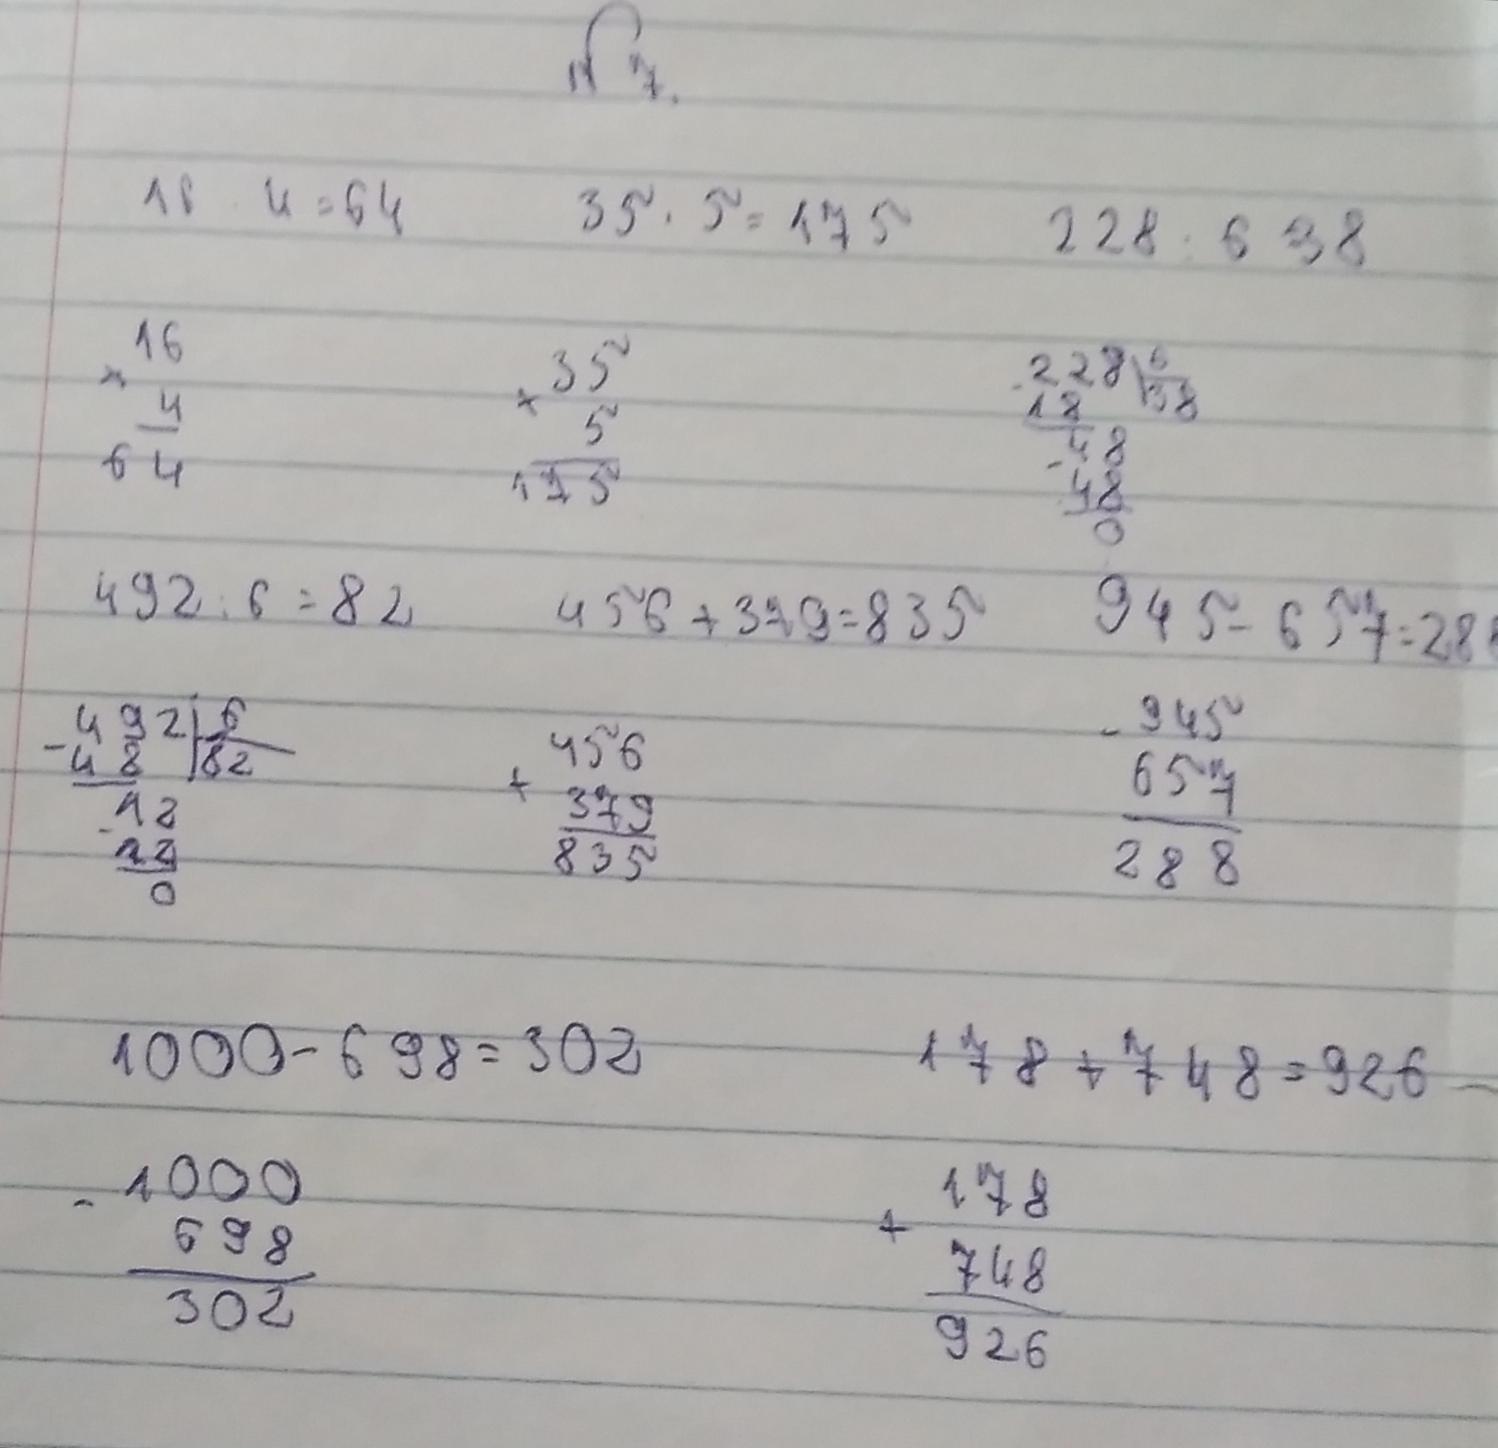 № 7.
16 · 4 = 64 35 · 5 = 175 228 : 6 38
16 35 228 6
× 4 × 5 - 18 38
64 175 48
- 48
0
492 : 6 = 82 456 + 379 = 835 945 - 657 = 288
- 492 6 456 - 945
48 82 + 379 657
12 835 288
- 12
0
1000 - 698 = 302 178 + 748 = 926
- 1000 178
698 + 748
302 926